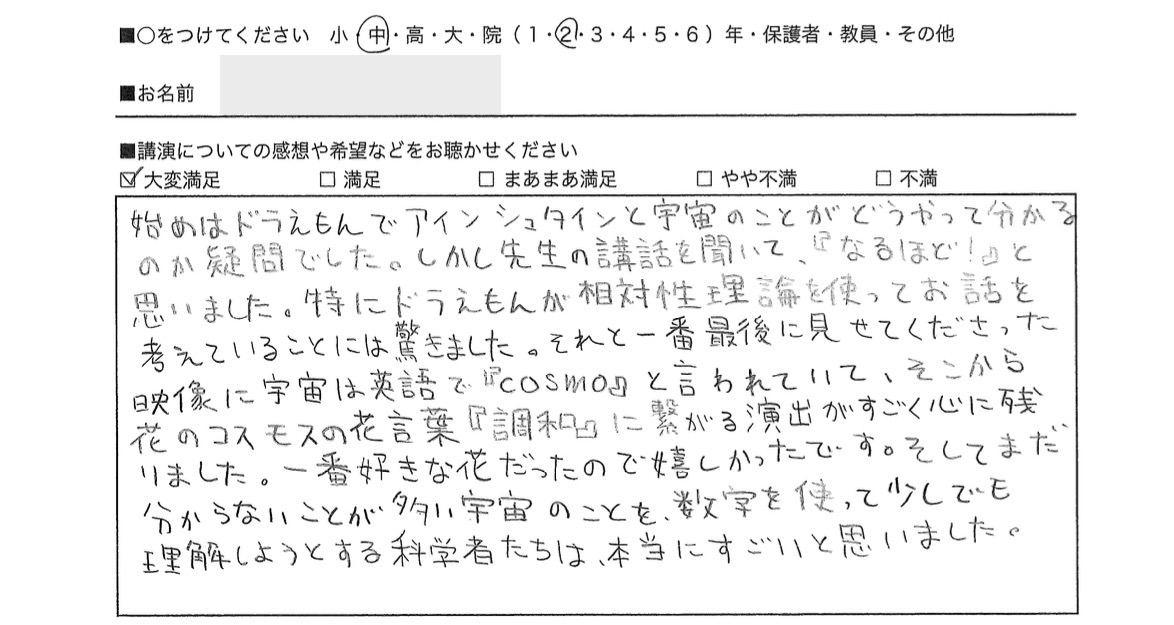 ■○をつけてください 小・中・高・大・院(1・2・3・4・5・6)年・保護者・教員・その他
■お名前
■講演についての感想や希望などをお聴かせください
☑大変満足 □ 満足 □ まあまあ満足 □ やや不満 □ 不満
始めはドラえもんでアインシュタインと宇宙のことがどうやって分かる
のか疑問でした。しかし先生の講話を聞いて、『なるほど!』と
思いました。特にドラえもんが相対性理論を使ってお話を
考えていることには驚きました。それと一番最後に見せてくださった
映像に宇宙は英語で『COSMO』と言われていて、そこから
花のコスモスの花言葉『調和』に繋がる演出がすごく心に残
りました。一番好きな花だったので嬉しかったです。そしてまだ
分からないことが多い宇宙のことを、数字を使って少しでも
理解しようとする科学者たちは、本当にすごいと思いました。